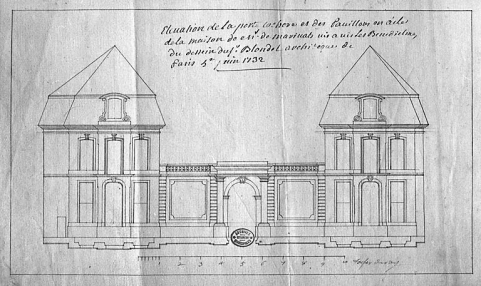 Elevation de la porte cochere et des Pavillons en aile
de la maison de Mr. de marsvals vis a vis les Benedictins
Du dessein du Sr. Blondel architecte de
Paris 4e juin 1732
1 2 3 4 5 6 7 8 9 10